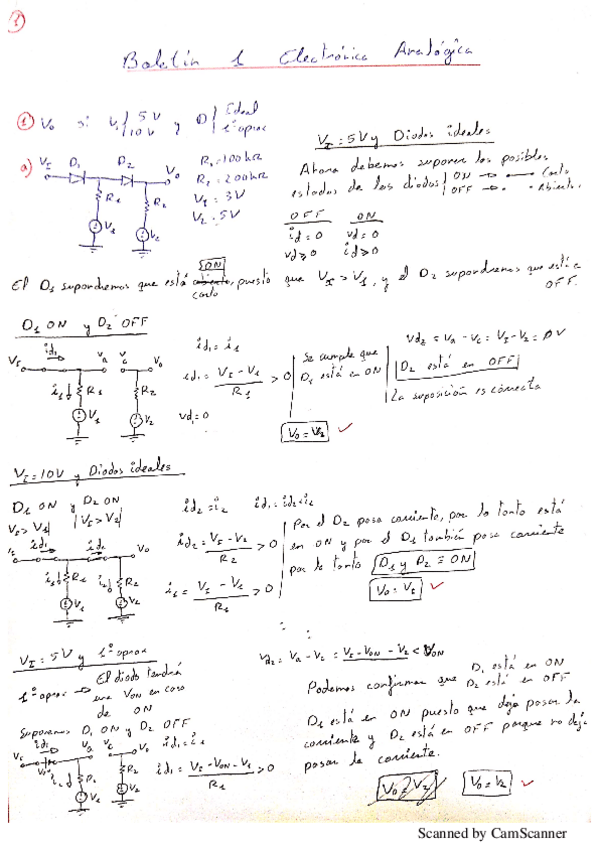 1
Boletín 1 Electrónica Analógica
① Vo si VI / 5V 10V y D / Ideal 1ª aprox
VI = 5V y Diodos ideales
a)
VI D1 D2 Vo
R1 R2
V1 V2
R1 = 100 kΩ
R2 = 200 kΩ
V1 = 3V
V2 = 5V
Ahora debemos suponer los posibles
estados de los diodos / ON → Corto
OFF → Abierto.
OFF ON
id = 0 vd = 0
id ≥ 0
ON
El D1 supondremos que está abierto, puesto que VI > V1, y el D2 supondremos que está
corto
OFF.
D1 ON y D2 OFF
VI id1 Va Vc Vo
i1 R1 R2
V1 V2
id1 = i1
id1 = VI - V1 / R1 > 0
vd1 = 0
Se cumple que
D1 está en ON
vd2 = Va - Vc = VI - V2 = 0V
D2 está en OFF
La suposición es correcta
Vo = V2 ✓
VI = 10V y Diodos ideales
D1 ON y D2 ON
VI > V1 VI > V2
id1 id2 Vo
i1 R1 i2 R2
V1 V2
id2 = i2 id1 = id2 + i1
id2 = VI - V2 / R2 > 0
i1 = VI - V1 / R1 > 0
Por el D2 pasa corriente, por lo tanto está
en ON y por el D1 también pasa corriente
por lo tanto D1 y D2 = ON
Vo = VI ✓
VI = 5V y 1ª aprox
1ª aprox → El diodo tendrá
una VON en caso
de ON
Suponemos D1 ON y D2 OFF
id1 Va Vc Vo
R1 R2
V1 V2
id1 = i1
id1 = VI - VON - V1 / R1 > 0
vd2 = Va - Vc = VI - VON - V2 < VON
Podemos confirmar que D1 está en ON
D2 está en OFF
D1 está en ON puesto que deja pasar la
corriente y D2 está en OFF porque no deja
pasar la corriente.
Vo = V2 Vo = V2 ✓
Scanned by CamScanner